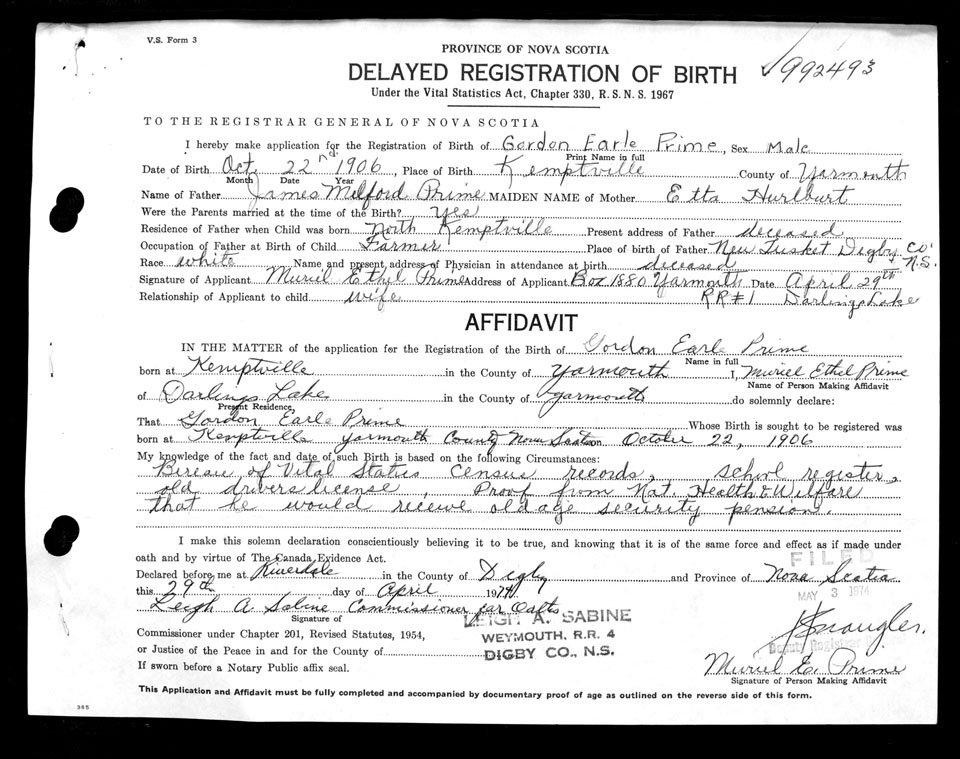 V.S. Form 3
PROVINCE OF NOVA SCOTIA
DELAYED REGISTRATION OF BIRTH
√992493
Under the Vital Statistics Act, Chapter 330, R.S.N.S. 1967
TO THE REGISTRAR GENERAL OF NOVA SCOTIA
I hereby make application for the Registration of Birth of Gordon Earle Prime, Sex Male
Print Name in full
Date of Birth Oct 22nd 1906, Place of Birth Kemptville County of Yarmouth
Month Date Year
Name of Father James Milford Prime MAIDEN NAME of Mother Etta Hurlburt
Were the Parents married at the time of the Birth? Yes
Residence of Father when Child was born North Kemptville Present address of Father deceased
Occupation of Father at Birth of Child Farmer Place of birth of Father New Tusket Digby Co.
Race white Name and present address of Physician in attendance at birth deceased N.S.
Signature of Applicant Muriel Ethel Prime Address of Applicant Box 1880 Yarmouth Date April 29th
Relationship of Applicant to child wife RR#1 Darlings Lake
AFFIDAVIT
IN THE MATTER of the application for the Registration of the Birth of Gordon Earle Prime
Name in full
born at Kemptville in the County of Yarmouth I, Muriel Ethel Prime
Name of Person Making Affidavit
of Darlings Lake in the County of Yarmouth do solemnly declare:
Present Residence
That Gordon Earle Prime Whose Birth is sought to be registered was
born at Kemptville Yarmouth County Nova Scotia October 22, 1906
My knowledge of the fact and date of such Birth is based on the following Circumstances:
Bureau of Vital Statics Census records, school register,
old drivers license, Proof from Nat. Health & Welfare
that he would receive old age security pension.
I make this solemn declaration conscientiously believing it to be true, and knowing that it is of the same force and effect as if made under
oath and by virtue of The Canada Evidence Act.
FILED
Declared before me at Riverdale in the County of Digby and Province of Nova Scotia
this 29th day of April 1974
MAY 3 1974
Leigh A. Sabine Commissioner for Oaths
Signature of
LEIGH A. SABINE
Commissioner under Chapter 201, Revised Statutes, 1954,
WEYMOUTH, R.R. 4
or Justice of the Peace in and for the County of
DIGBY CO., N.S.
Deputy Registrar
If sworn before a Notary Public affix seal.
Muriel E. Prime
Signature of Person Making Affidavit
This Application and Affidavit must be fully completed and accompanied by documentary proof of age as outlined on the reverse side of this form.
385